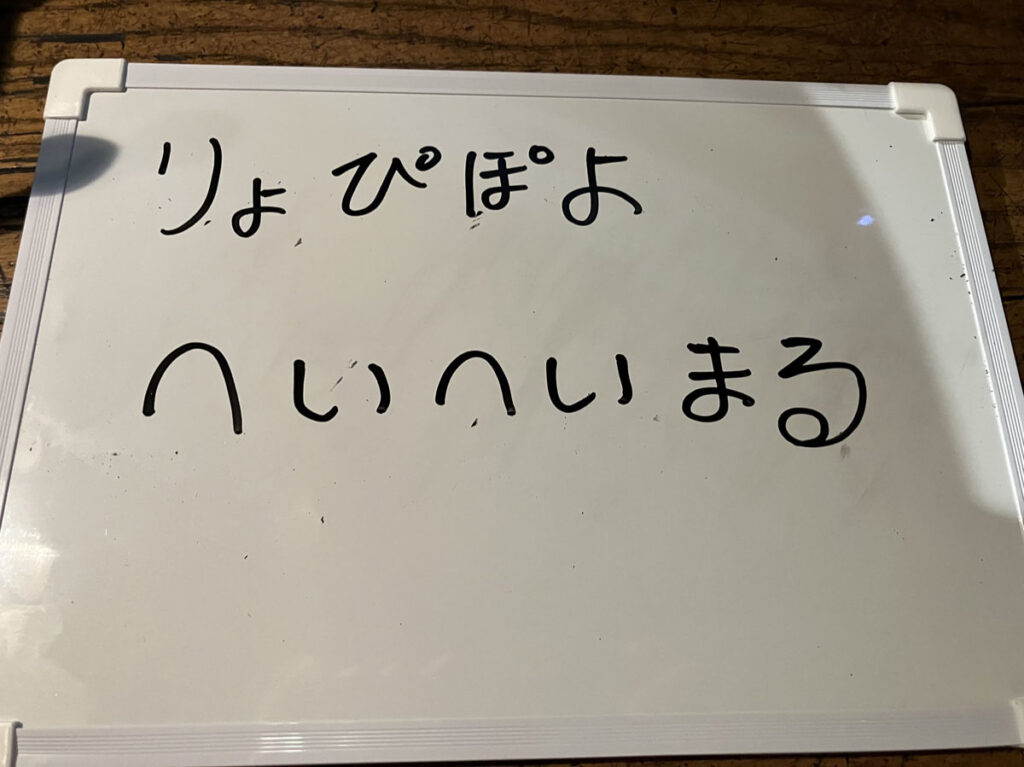 りょぴぽよ
へいへいまる